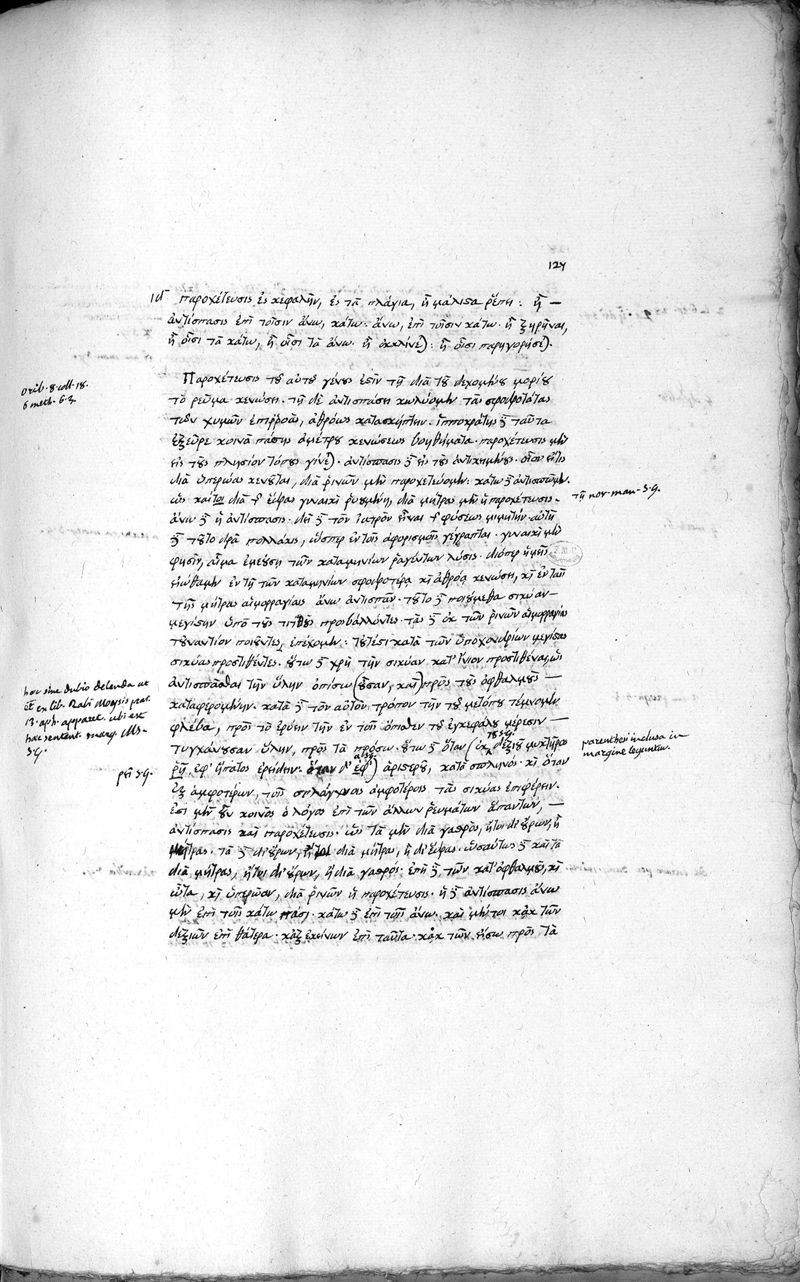 127
ιδ παροχέτευσις ἐς κεφαλὴν, ἐς τὰ πλάγια, ἢ μάλιστα ῥέπει : ἢ —
ἀντίσπασις ἐπὶ τοῖσιν ἄνω, κάτω· ἄνω, ἐπὶ τοῖσιν κάτω· ἢ ξηρῆναι,
ἢ οἷσι τὰ κάτω, ἢ οἷσι τὰ ἄνω· ἢ
Παροχέτευσις τοῦ αὐτοῦ γένους ἐστὶν τῇ διὰ τοῦ δεχομένου μορίου
τὸ ῥεῦμα κενώσει· τῇ δὲ ἀντισπάσει κωλύομεν τὰς σφοδροτάτας
τῶν χυμῶν ἐπιρροὰς, ἀθρόως κατασκήπτειν· ἱπποκράτης δὲ ταῦτα
ἐξεῦρε κοινὰ πάσης ἀμέτρου κενώσεως βοηθήματα· παροχέτευσις μὲν
εἰς τοὺς πλησίον τόπους γίνεται· ἀντίσπασις δὲ εἰς τοὺς ἀντικειμένους· οἷον εἴ τις
διὰ ὑπερώας κενοῦται, διὰ ῥινῶν μὲν παροχετεύομεν· κάτω δὲ ἀντισπῶμεν·
διὰ τῆς ἕδρας γυναικὶ διὰ μήτρας μὲν ἡ παροχέτευσις·
ἄνω δὲ ἡ ἀντίσπασις· δεῖ δὲ τὸν ἰατρὸν εἶναι τῆς φύσεως μιμητήν· αὐτὴ
δὲ τοῦτο δρᾷ πολλάκις, ὥσπερ ἐν τοῖς ἀφορισμοῖς γέγραπται· γυναικὶ μὲν
φησὶν, αἷμα ἐμεούσῃ τῶν καταμηνίων ῥαγέντων λύσις· διόπερ ἡμεῖς
εἰώθαμεν ἐν τῇ τῶν καταμηνίων σφοδροτέρᾳ καὶ ἀθρόᾳ κενώσει, καὶ ἐν ταῖς
τῆς μήτρας αἱμορραγίαις ἄνω ἀντισπᾶν· τοῦτο δὲ ποιούμεθα σικύαν —
μεγίστην ὑπὸ τοὺς τιτθοὺς προσβάλλοντες· τὰς δὲ ἐκ τῶν ῥινῶν αἱμορραγίας
τοὐναντίον ποιοῦντες, ἐπέχομεν· τουτέστι κατὰ τῶν ὑποχονδρίων μεγίστας
σικύας προστιθέντες· οὕτω δὲ χρὴ τὴν σικύαν κατ' ἰνίον προστιθέναι, ὡς
ἀντισπᾶσθαι τὴν ὕλην ὀπίσω (οὖσαν, καὶ) πρὸς τοὺς ὀφθαλμοὺς —
καταφερομένην· κατὰ δὲ τὸν αὐτὸν τρόπον τὴν τοῦ μετώπου τέμνομεν
φλέβα, πρὸς τὸ ἐρύειν τὴν ἐν τοῖς ὄπισθεν τοῦ ἐγκεφάλου μέρεσιν —
τυγχάνουσαν ὕλην, πρὸς τὰ πρόσω· οὕτω δὲ ὅταν (ἐκ δεξιοῦ μυκτῆρος
ῥέῃ, ἐφ' ἥπατος ἐρείδειν· ὅταν δ' ἐφ') ἀριστεροῦ, κατὰ σπληνός· καὶ ὅταν
ἐξ ἀμφοτέρων, τοῖς σπλάγχνοις ἀμφοτέροις τὰς σικύας ἐπιφέρειν·
ἔστι μὲν οὖν κοινὸς ὁ λόγος ἐπὶ τῶν ἄλλων ῥευμάτων ἁπάντων, —
ἀντίσπασις καὶ παροχέτευσις· ὡς τὰ μὲν διὰ γαστρὸς, ἤτοι δι' οὔρων, ἢ
μήτρας· τὰ δὲ δι' οὔρων, ἤτοι διὰ μήτρας, ἢ δι' ἕδρας· ὡσαύτως δὲ καὶ τὰ
διὰ μήτρας, ἤτοι δι' οὔρων, ἢ διὰ γαστρός· ἐπὶ δὲ τῶν κατ' ὀφθαλμοὺς, καὶ
ὦτα, καὶ ὑπερῴαν, διὰ ῥινῶν ἡ παροχέτευσις· ἡ δὲ ἀντίσπασις ἄνω
μὲν ἐπὶ τοῖς κάτω πᾶσι· κάτω δὲ ἐπὶ τοῖς ἄνω· καὶ μέντοι κἀκ τῶν
δεξιῶν ἐπὶ θάτερα· κἀξ ἐκείνων ἐπὶ ταῦτα· κἀκ τῶν εἴσω πρὸς τὰ
orib. 8 coll. 18.
6 meth. 6.
τῇ nov· man· sg.
hoc sine dubio delenda ut
ex lib. Rabi Moysis
13. aph. apparet. ubi est
haec sentent. marg. Ms.
sg.
sg.
parenthesi inclusa in
margine leguntur.